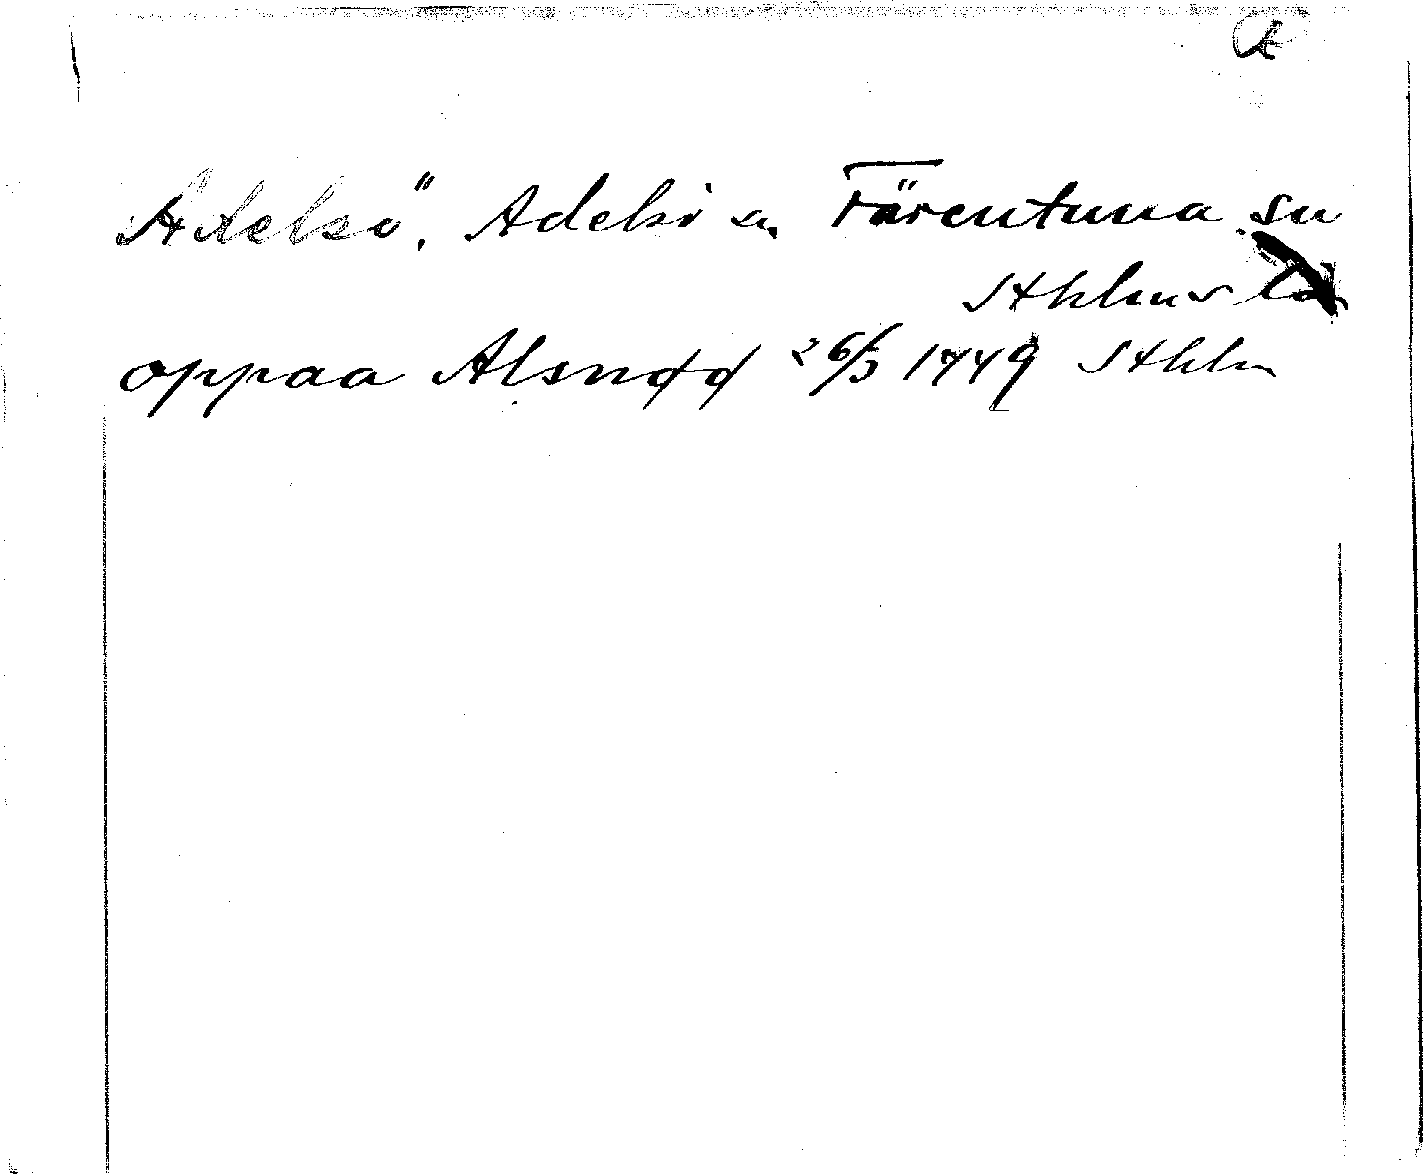 A
Adelsö, Adelsö sn, Färentuna sn
Sthlms län
oppaa Alsnøø 26/5 1449 Sthlm